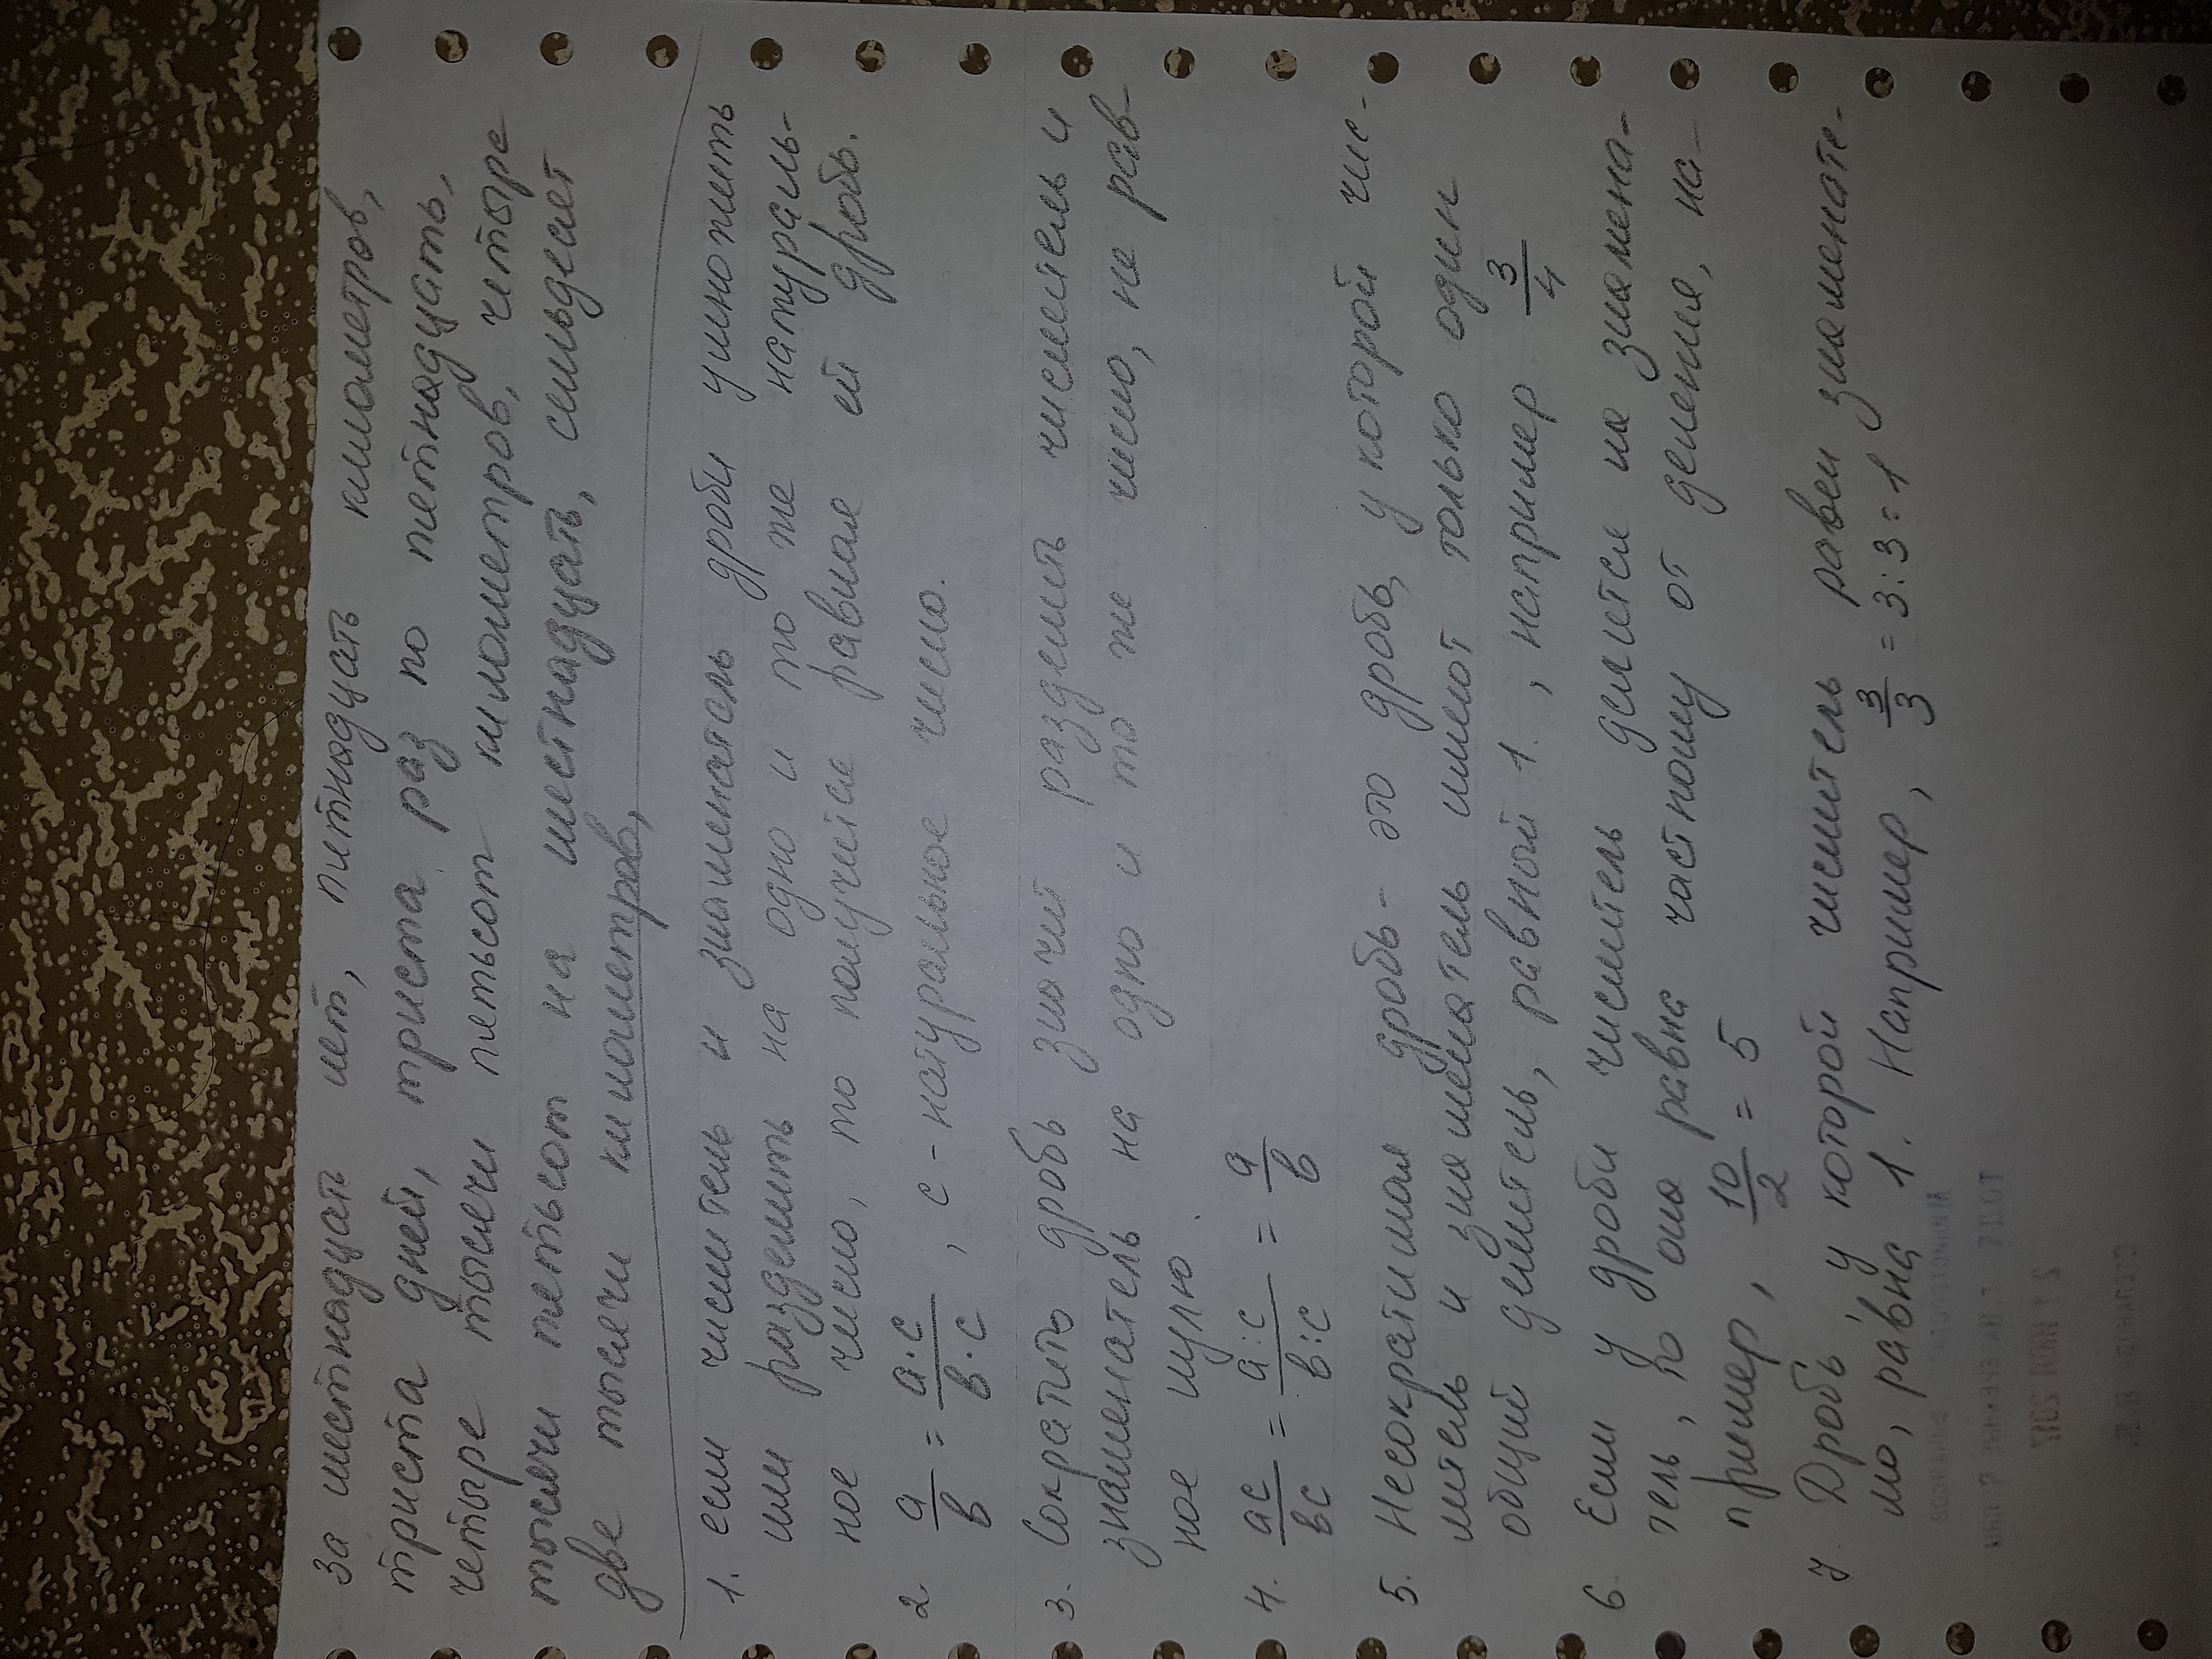 за шестнадцать лет, пятнадцать километров,
триста дней, триста раз по пятнадцать,
четыре тысячи пятьсот километров, четыре
тысячи пятьсот на шестнадцать, семьдесят
две тысячи километров,
1. если числитель и знаменатель дроби умножить
или разделить на одно и то же натураль-
ное число, то получится равная ей дробь.
2 a/b = a·c/b·c , c - натуральное число.
3. Сократить дробь значит разделить числитель и
знаменатель на одно и то же число, не рав-
ное нулю.
4. ac/bc = a:c/b:c = a/b
5. Несократимая дробь - это дробь, у которой чис-
литель и знаменатель имеют только один
общий делитель, равной 1. , например 3/4
6 Если у дроби числитель делится на знамена-
тель, то она равна частному от деления, на-
пример, 10/2 = 5
7. Дробь, у которой числитель равен знаменате-
лю, равна 1. Например, 3/3 = 3:3=1